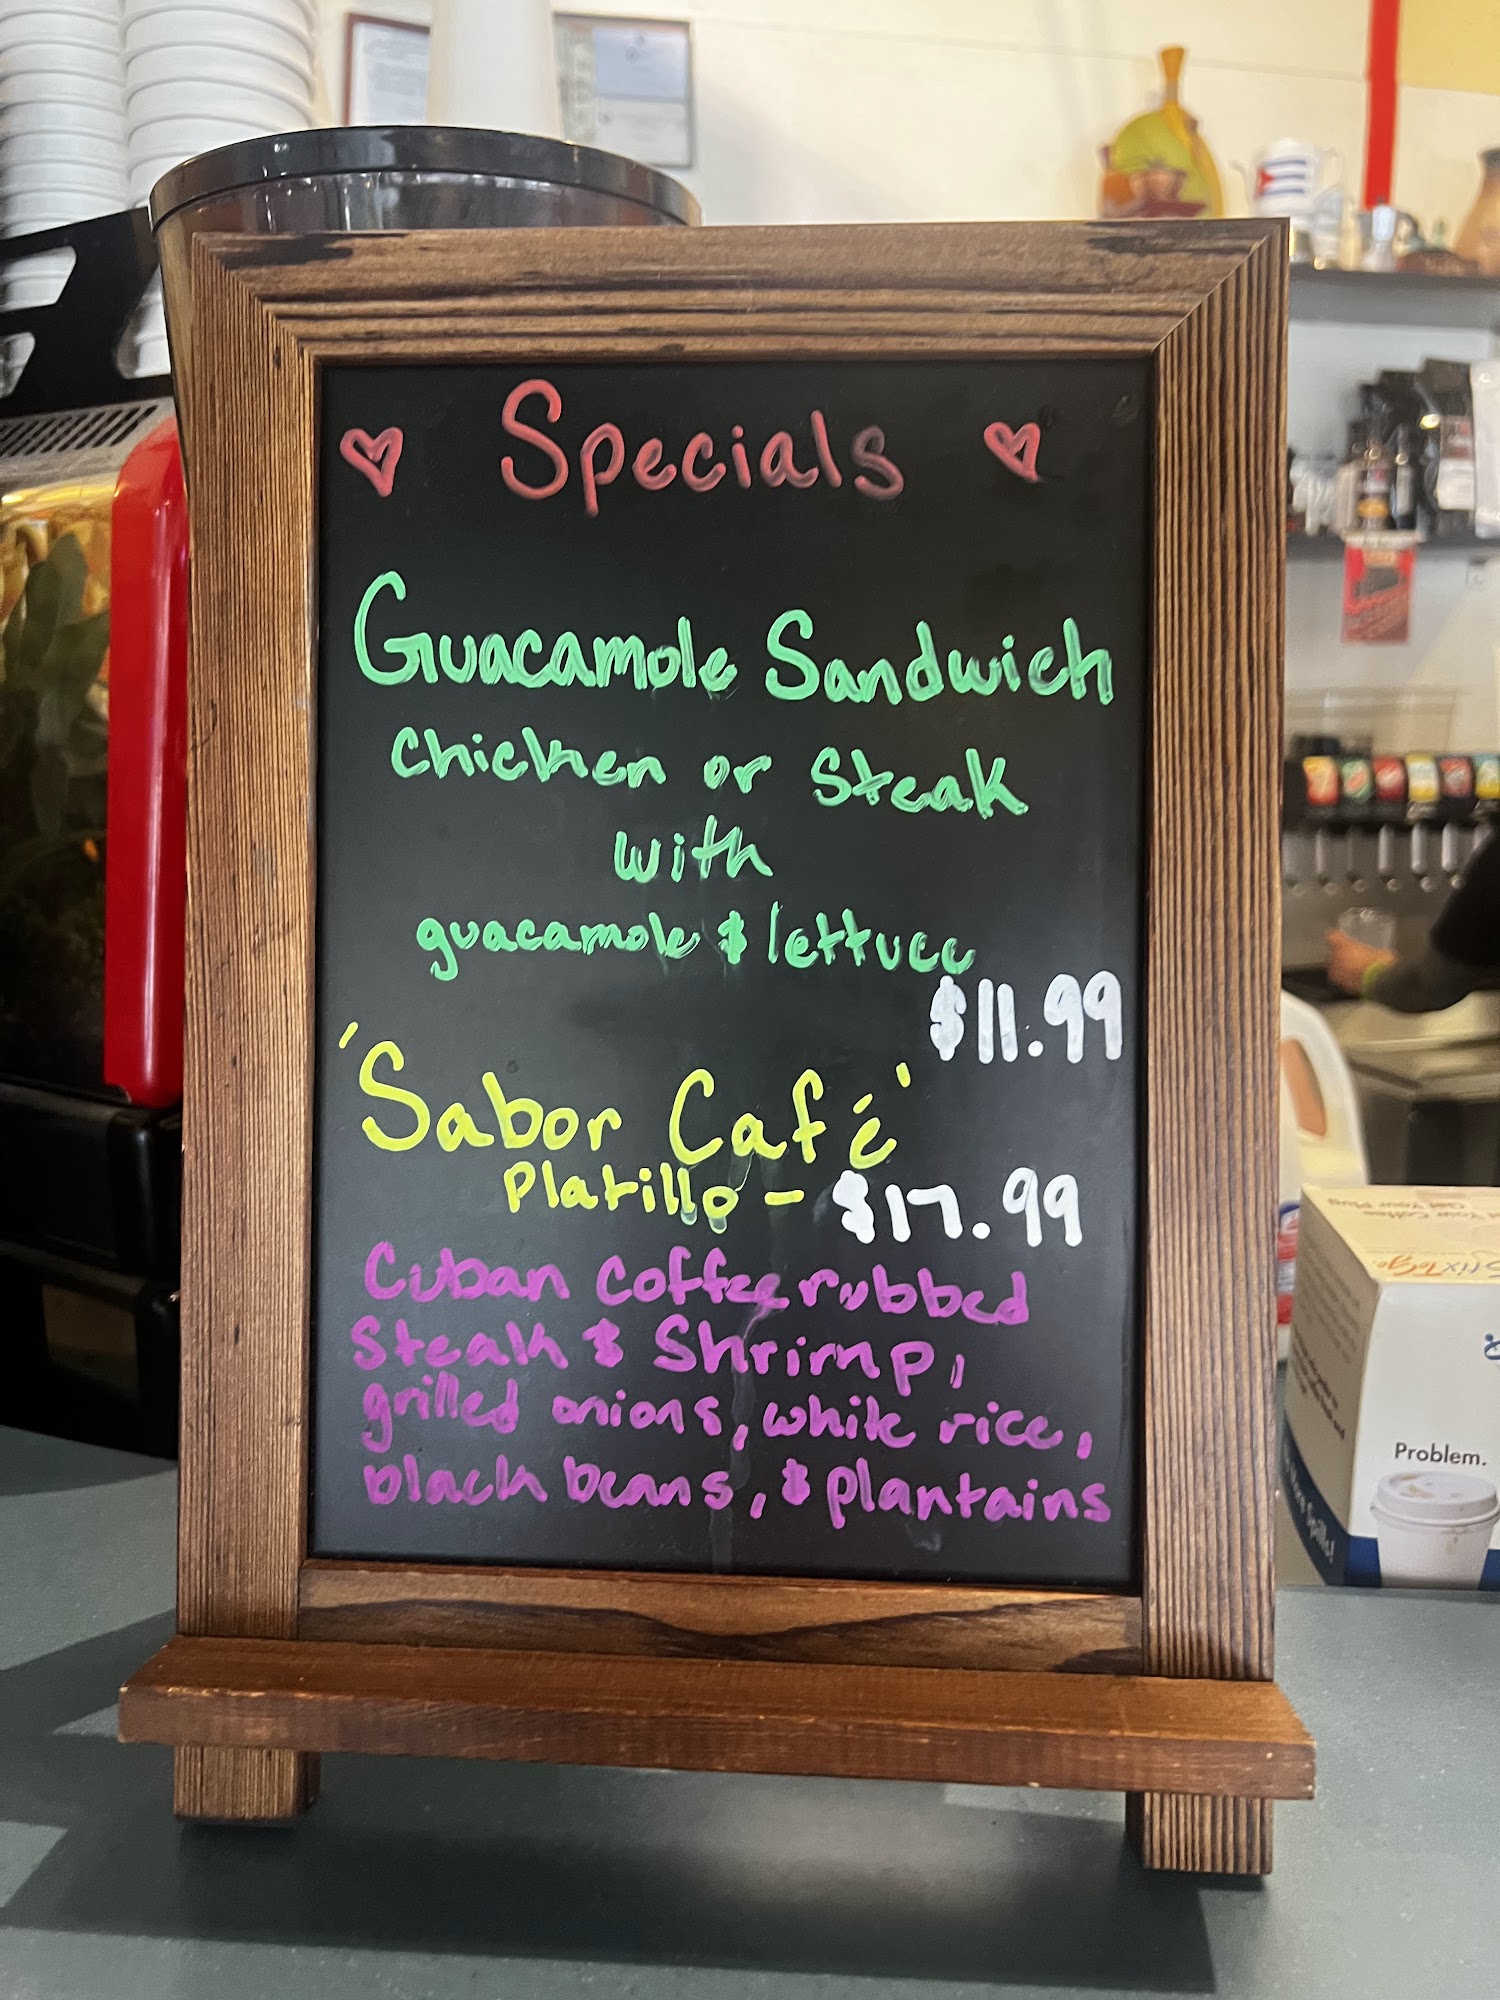 Specials
Guacamole Sandwich
Chicken or Steak
with
guacamole & lettuce
$11.99
'Sabor Café'
Platillo - $17.99
Cuban Coffee rubbed
Steak & Shrimp,
grilled onions, white rice,
black beans, & plantains
Problem.